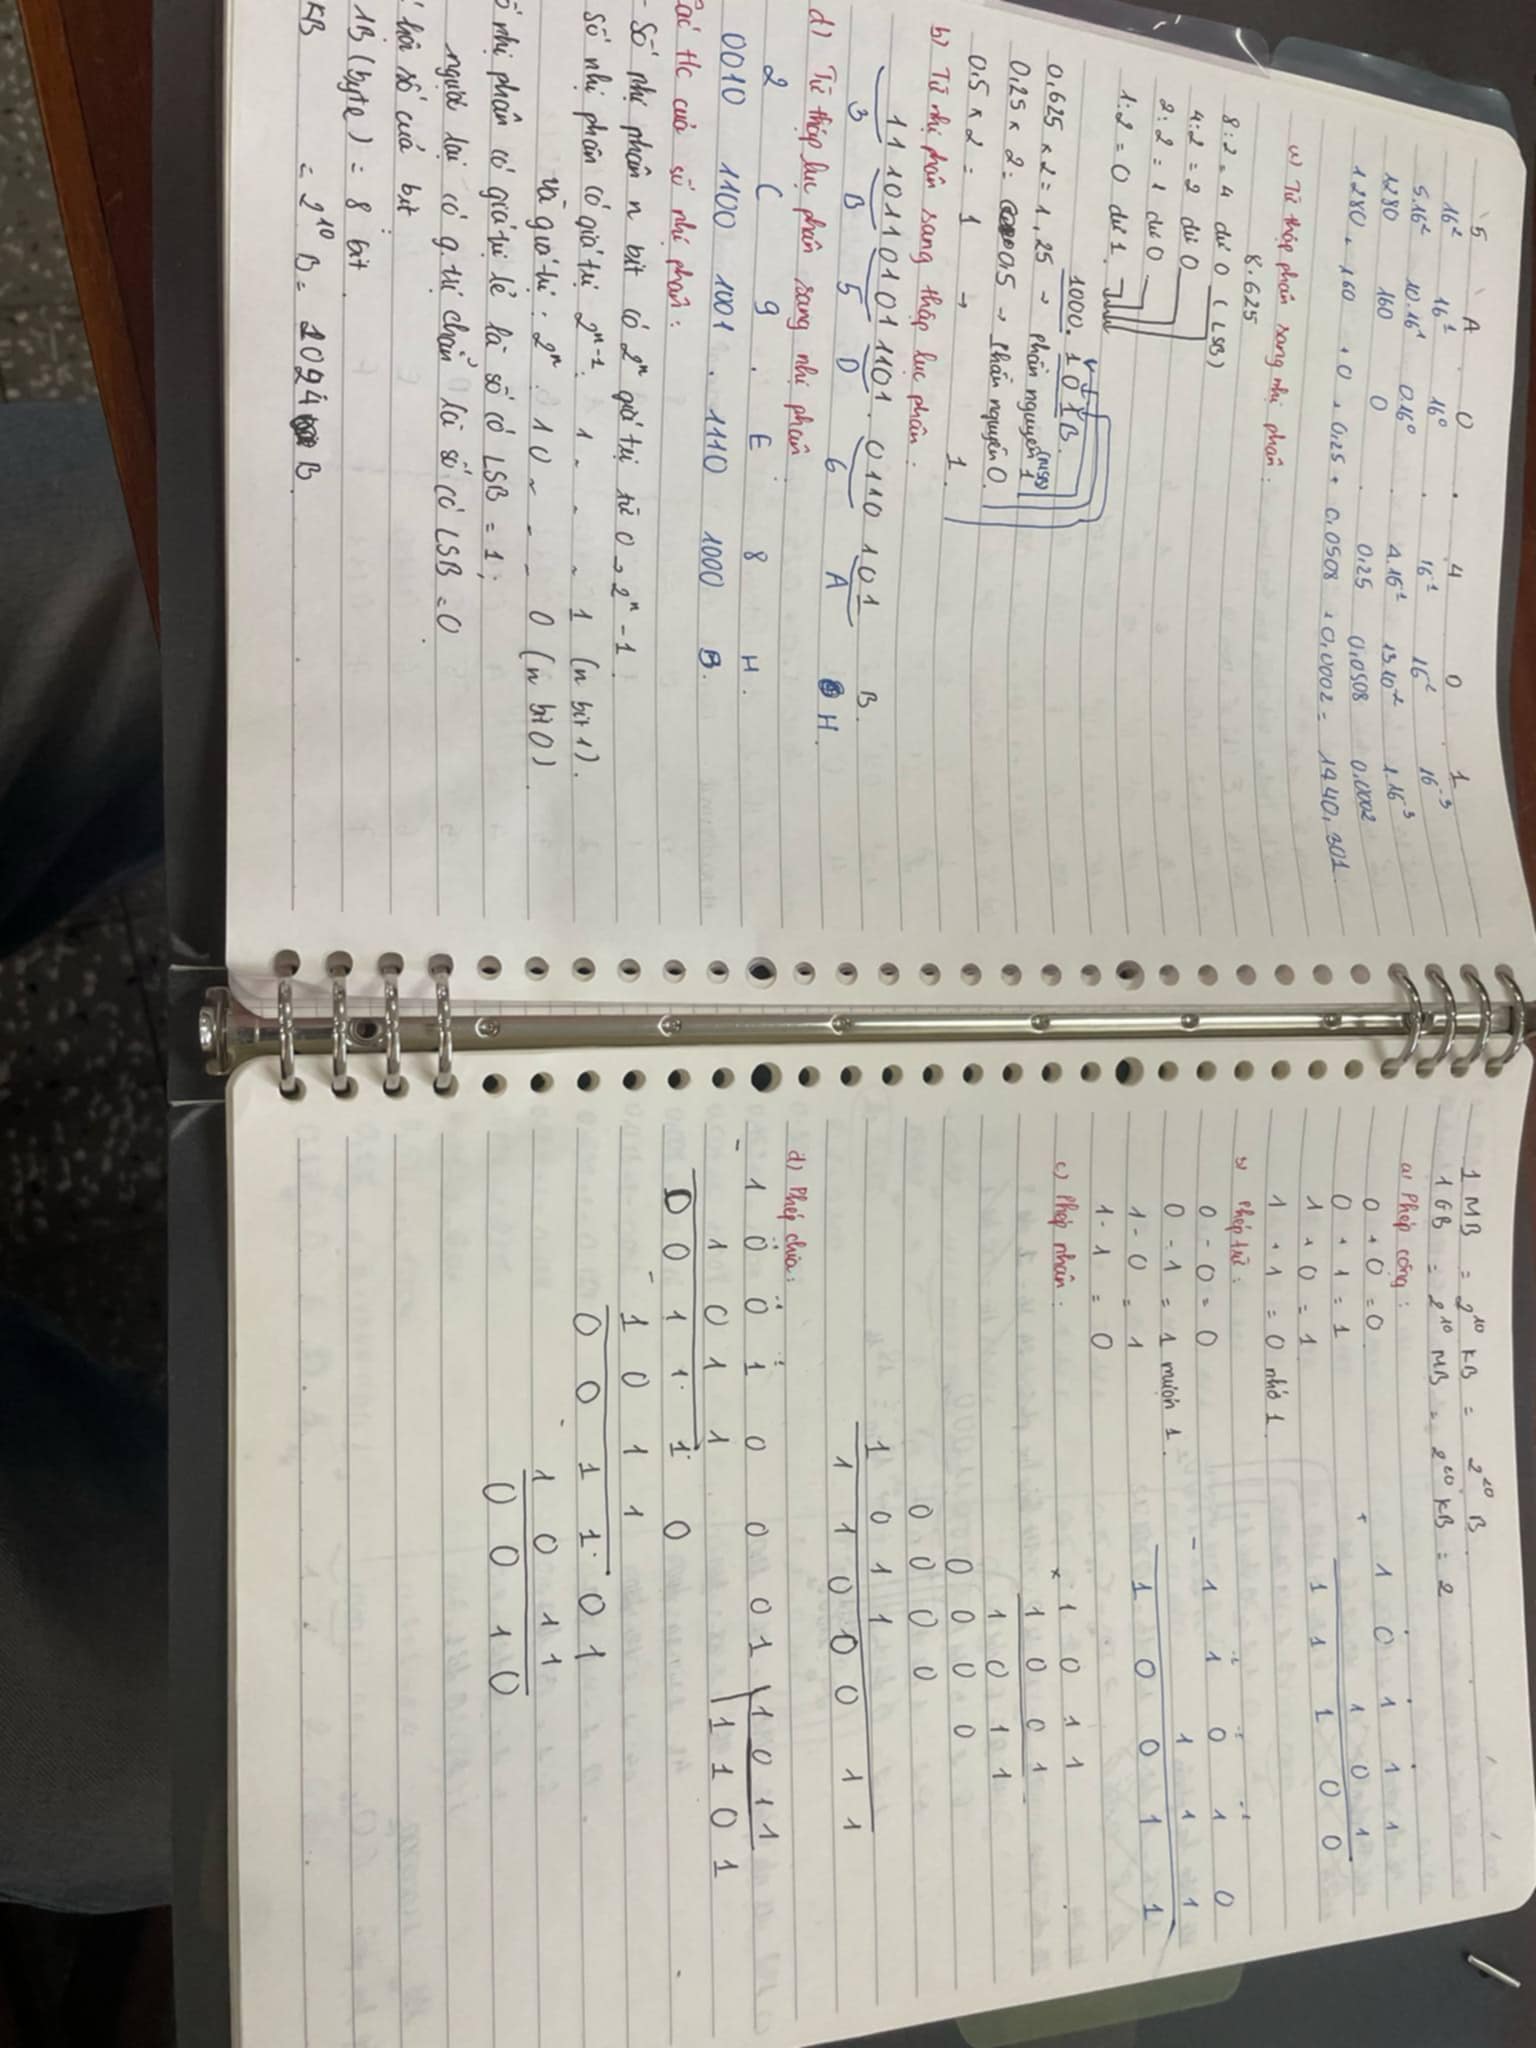 5 A 0 . 4 0 1
16² 16¹ 16⁰ . 16⁻¹ 16⁻² 16⁻³
5.16² 10.16¹ 0.16⁰ . 4.16⁻¹ 13.10⁻² 1.16⁻³
1280 160 0 . 0.25 0,0508 0.0002
1280 + 160 + 0 + 0,25 + 0,0508 + 0,0002 = 1440,301.
a) Từ thập phân sang nhị phân:
8.625
8:2 = 4 dư 0 (LSB)
4:2 = 2 dư 0
2:2 = 1 dư 0
1:2 = 0 dư 1.
1000. 101B.
0,625 × 2 = 1,25 → phần nguyên 1 (MSB)
0,25 × 2 = 0,5 → Phần nguyên 0.
0,5 × 2 = 1 → 1.
b) Từ nhị phân sang thập lục phân:
11 1011 0101 1101 . 0110 101 B.
3 B 5 D 6 A H.
d) Từ thập lục phân sang nhị phân:
2 C 9 . E 8 H.
0010 1100 1001 . 1110 1000 B.
Các t/c của số nhị phân:
- Số nhị phân n bit có 2ⁿ giá trị từ 0 → 2ⁿ - 1.
Số nhị phân có giá trị 2ⁿ⁻¹: 1 - - - 1 (n bit 1).
và giá trị: 2ⁿ: 10 - - - 0 (n bit 0).
ố nhị phân có giá trị lẻ là số có LSB = 1;
ngược lại có g.trị chẵn là số có LSB = 0.
bội số của bit:
1B (byte) = 8 bit.
KB = 2¹⁰ B = 1024 B.
1 MB = 2¹⁰ KB = 2²⁰ B.
1 GB = 2¹⁰ MB = 2²⁰ KB = 2
a) Phép cộng:
0 + 0 = 0
0 + 1 = 1
1 + 0 = 1.
1 + 1 = 0 nhớ 1.
1 0 1 1 1
+ 1 0 1
1 1 1 0 0
b) Phép trừ:
0 - 0 = 0
0 - 1 = 1 mượn 1.
1 - 0 = 1
1 - 1 = 0
-1 -1 -1
1 1 0 1 0
- 1 1 1
1 0 0 1 1
c) Phép nhân:
1 0 1 1
× 1 0 0 1
1 0 1 1
0 0 0 0
0 0 0 0
1 0 1 1
1 1 0 0 0 1 1
d) Phép chia:
-1 -1 -1
1 0 0 1 0 0 0 1 1 0 1 1
- 1 0 1 1 1 1 0 1
0 0 1 1 1 0
- 1 0 1 1
0 0 1 1 0 1
- 1 0 1 1
0 0 1 0